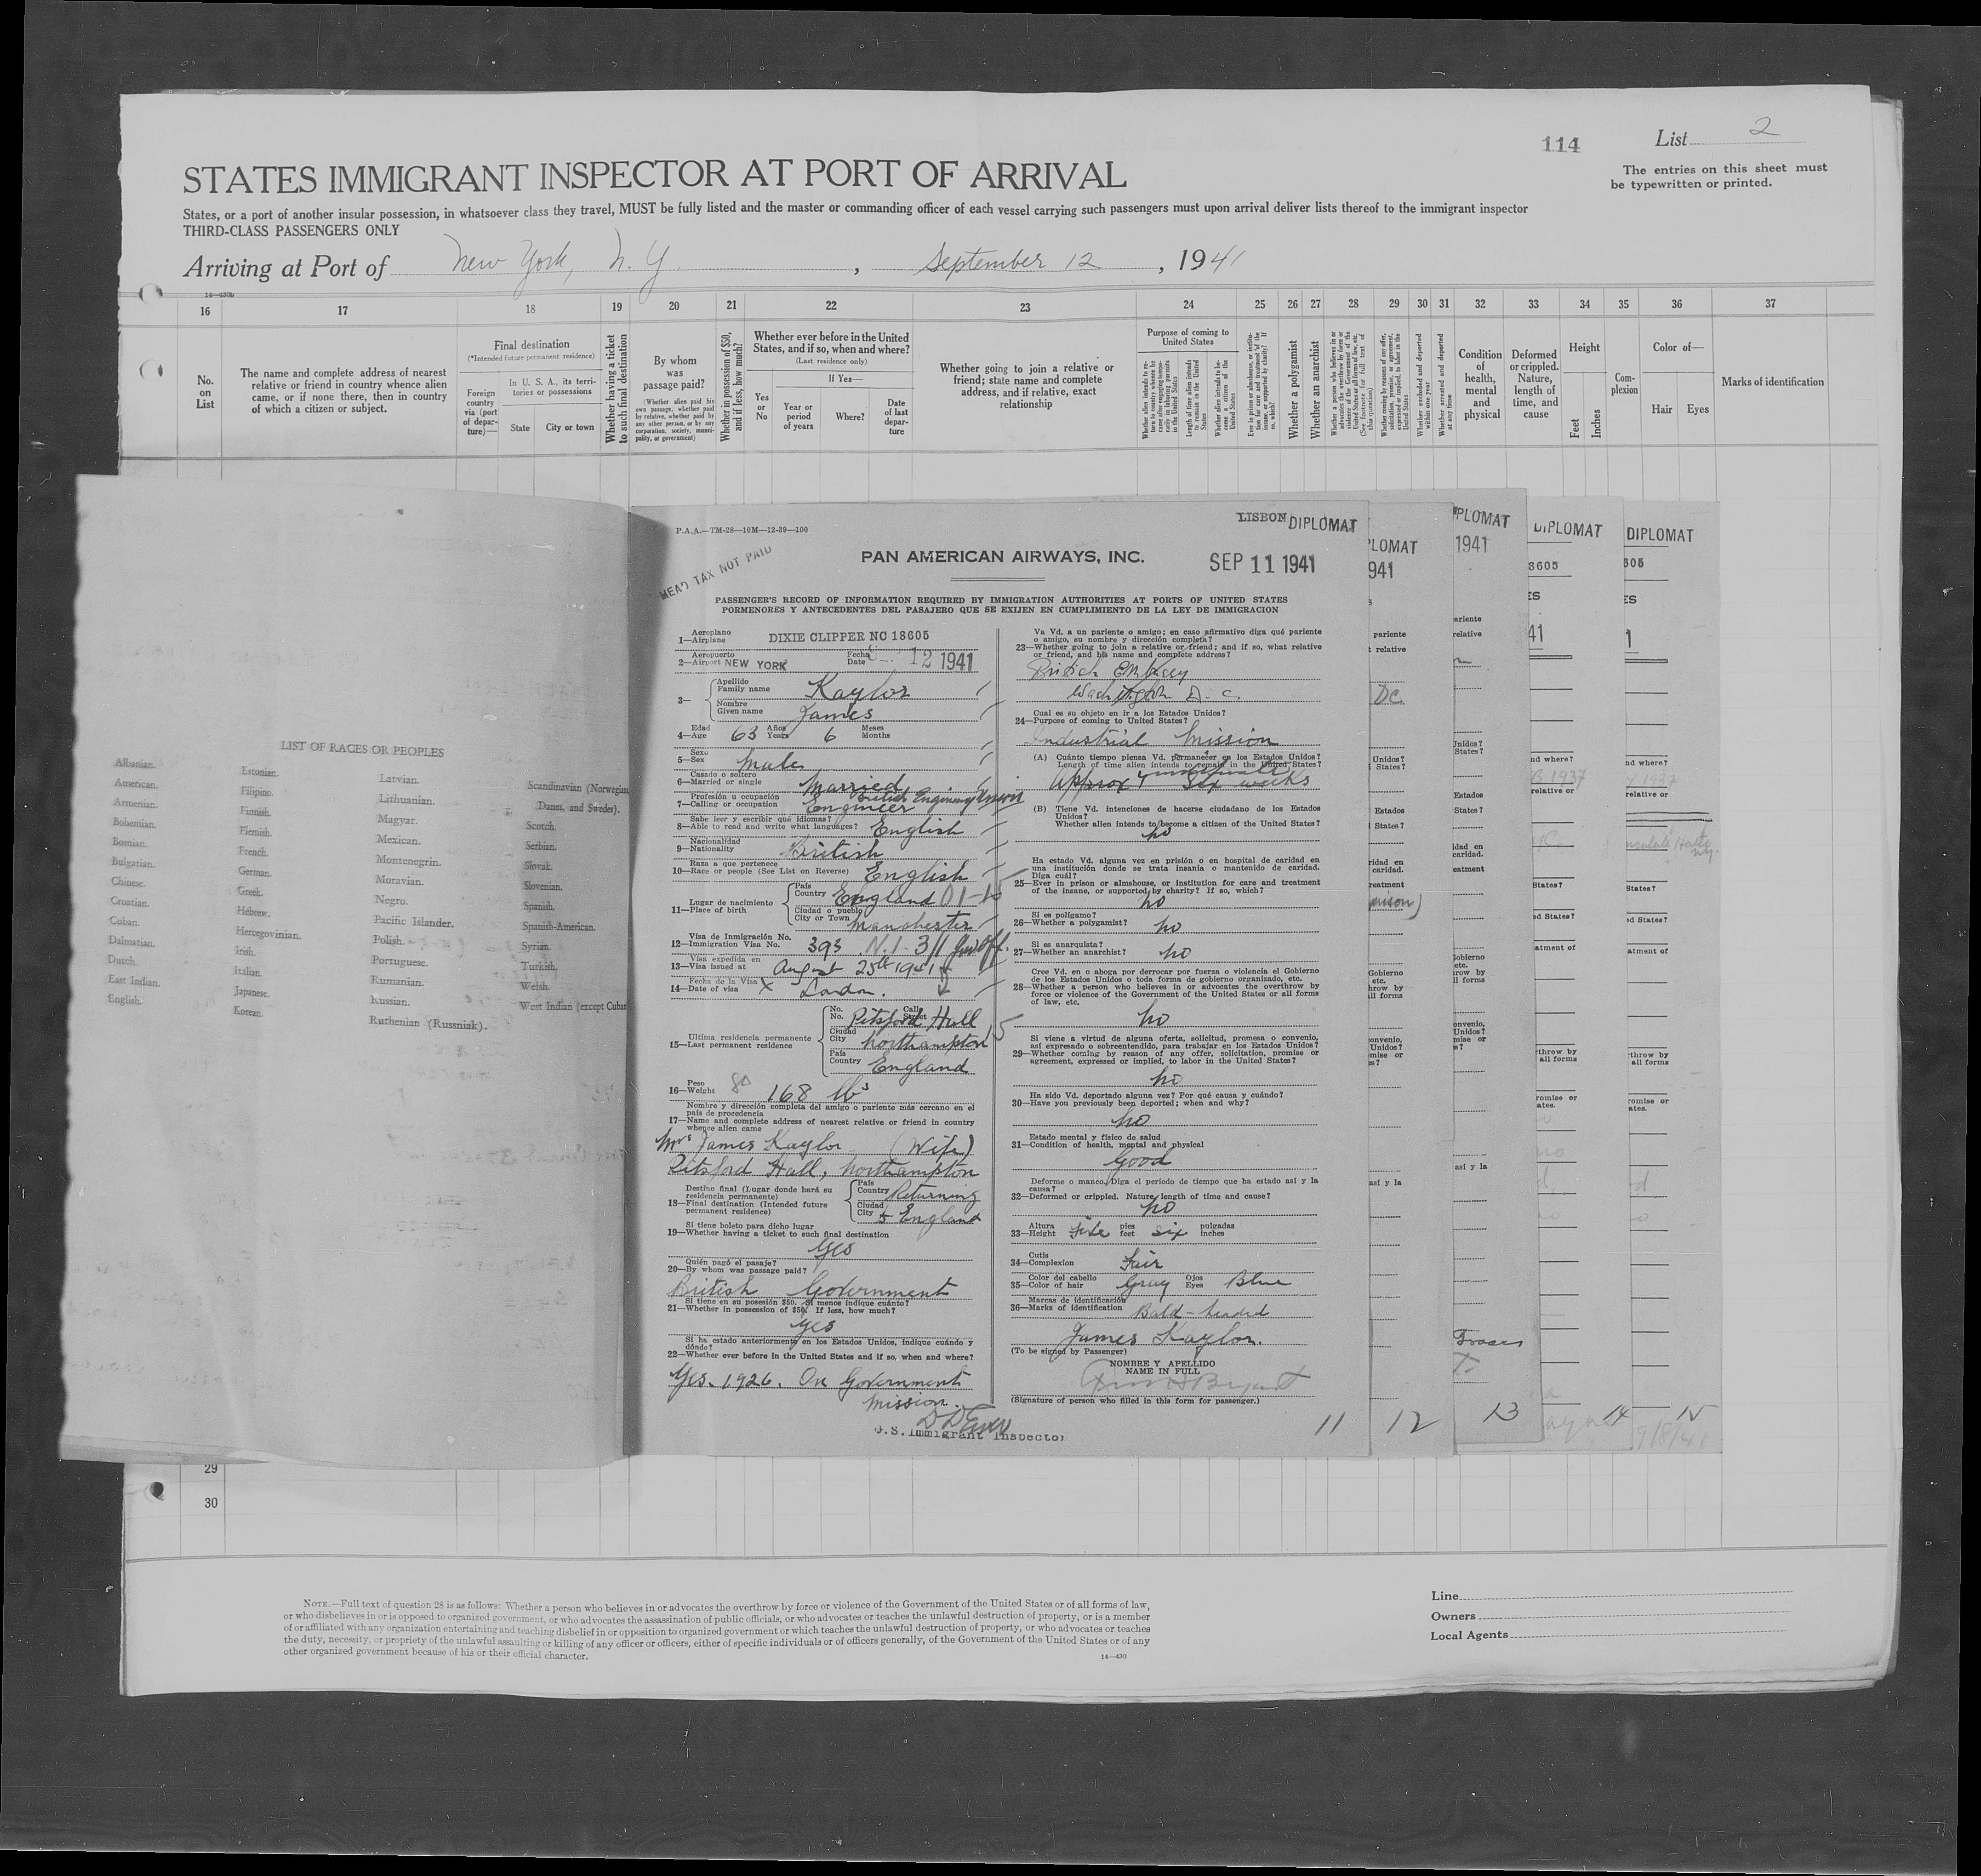 114
List 2
The entries on this sheet must
be typewritten or printed.
STATES IMMIGRANT INSPECTOR AT PORT OF ARRIVAL
States, or a port of another insular possession, in whatsoever class they travel, MUST be fully listed and the master or commanding officer of each vessel carrying such passengers must upon arrival deliver lists thereof to the immigrant inspector
THIRD-CLASS PASSENGERS ONLY
Arriving at Port of New York, N. Y. , September 12 , 1941
16 17 18 19 20 21 22 23 24 25 26 27 28 29 30 31 32 33 34 35 36 37
No.
on
List
The name and complete address of nearest
relative or friend in country whence alien
came, or if none there, then in country
of which a citizen or subject.
Final destination
(*Intended future permanent residence)
Foreign
country
via (port
of depar-
ture)—
In U. S. A., its terri-
tories or possessions
State
City or town
Whether having a ticket
to such final destination
By whom
was
passage paid?
(Whether alien paid his
own passage, whether paid
by relative, whether paid by
any other person, or by any
corporation, society, munici-
pality, or government)
Whether in possession of $50,
and if less, how much?
Whether ever before in the United
States, and if so, when and where?
(Last residence only)
Yes
or
No
If Yes—
Year or
period
of years
Where?
Date
of last
depar-
ture
Whether going to join a relative or
friend; state name and complete
address, and if relative, exact
relationship
Purpose of coming to
United States
Whether a polygamist
Whether an anarchist
Condition
of
health,
mental
and
physical
Deformed
or crippled.
Nature,
length of
time, and
cause
Height
Feet
Inches
Com-
plexion
Color of—
Hair
Eyes
Marks of identification
LIST OF RACES OR PEOPLES
Albanian.
American.
Armenian.
Bohemian.
Bosnian.
Bulgarian.
Chinese.
Croatian.
Cuban.
Dalmatian.
Dutch.
East Indian.
English.
Estonian.
Filipino.
Finnish.
Flemish.
French.
German.
Greek.
Hebrew.
Hercegovinian.
Irish.
Italian.
Japanese.
Korean.
Latvian.
Lithuanian.
Magyar.
Mexican.
Montenegrin.
Moravian.
Negro.
Pacific Islander.
Polish.
Portuguese.
Rumanian.
Russian.
Ruthenian (Russniak).
Scandinavian (Norwegian
Danes, and Swedes).
Scotch.
Serbian.
Slovak.
Slovenian.
Spanish.
Spanish-American.
Syrian.
Turkish.
Welsh.
West Indian (except Cuban
P.A.A.—TM-28—10M—12-39—100
LISBON DIPLOMAT
HEAD TAX NOT PAID
PAN AMERICAN AIRWAYS, INC.
SEP 11 1941
PASSENGER'S RECORD OF INFORMATION REQUIRED BY IMMIGRATION AUTHORITIES AT PORTS OF UNITED STATES
PORMENORES Y ANTECEDENTES DEL PASAJERO QUE SE EXIJEN EN CUMPLIMIENTO DE LA LEY DE IMMIGRACION
Aeroplano
1—Airplane DIXIE CLIPPER NC 18605
Aeropuerto Fecha
2—Airport NEW YORK Date 12 1941
3—
Apellido
Family name Kaylor
Nombre
Given name James
Edad Años Meses
4—Age 63 Years 6 Months
Sexo
5—Sex Male
Casado o soltero
6—Married or single Married
Profesión u ocupación
7—Calling or occupation Engineer
Sabe leer y escribir qué idiomas?
8—Able to read and write what languages? English
Nacionalidad
9—Nationality British
Raza a que pertenece
10—Race or people (See List on Reverse) English
Lugar de nacimiento
11—Place of birth
País
Country England
Ciudad o pueblo
City or Town Manchester
Visa de Inmigración No.
12—Immigration Visa No. 393 N.I. 3/1 Gov Off.
Visa expedida en
13—Visa issued at August 25th 1941
Fecha de la Visa
14—Date of visa X London.
Ultima residencia permanente
15—Last permanent residence
No. Calle
No. Street Pitsford Hall
Ciudad
City Northampton
País
Country England
Peso
16—Weight 80 168 lbs
Nombre y dirección completa del amigo o pariente más cercano en el
país de procedencia
17—Name and complete address of nearest relative or friend in country
whence alien came
Mrs James Kaylor (Wife)
Pitsford Hall, Northampton
Destino final (Lugar donde hará su
residencia permanente)
18—Final destination (Intended future
permanent residence)
País
Country Returning
Ciudad
City to England
Si tiene boleto para dicho lugar
19—Whether having a ticket to such final destination
Yes
Quién pagó el pasaje?
20—By whom was passage paid?
British Government
Si tiene en su posesión $50. Si menos indique cuánto?
21—Whether in possession of $50. If less, how much?
Yes
Si ha estado anteriormente en los Estados Unidos, indique cuándo y
dónde?
22—Whether ever before in the United States and if so, when and where?
Yes. 1926. On Government
Mission.
U.S. Immigrant Inspector
Va Vd. a un pariente o amigo; en caso afirmativo diga qué pariente
o amigo, su nombre y dirección completa?
23—Whether going to join a relative or friend; and if so, what relative
or friend, and his name and complete address?
British Embassy
Washington D. C.
Cual es su objeto en ir a los Estados Unidos?
24—Purpose of coming to United States?
Industrial Mission
(A) Cuánto tiempo piensa Vd. permanecer en los Estados Unidos?
Length of time alien intends to remain in the United States?
Approx six weeks
(B) Tiene Vd. intenciones de hacerse ciudadano de los Estados
Unidos?
Whether alien intends to become a citizen of the United States?
No
Ha estado Vd. alguna vez en prisión o en hospital de caridad en
una institución donde se trata insania o mantenido de caridad.
Diga cuál?
25—Ever in prison or almshouse, or institution for care and treatment
of the insane, or supported by charity? If so, which?
No
Si es polígamo?
26—Whether a polygamist? No
Si es anarquista?
27—Whether an anarchist? No
Cree Vd. en o aboga por derrocar por fuerza o violencia el Gobierno
de los Estados Unidos o toda forma de gobierno organizado, etc.
28—Whether a person who believes in or advocates the overthrow by
force or violence of the Government of the United States or all forms
of law, etc.
No
Si viene a virtud de alguna oferta, solicitud, promesa o convenio,
así expresado o sobreentendido, para trabajar en los Estados Unidos?
29—Whether coming by reason of any offer, solicitation, promise or
agreement, expressed or implied, to labor in the United States?
No
Ha sido Vd. deportado alguna vez? Por qué causa y cuándo?
30—Have you previously been deported; when and why?
No
Estado mental y físico de salud
31—Condition of health, mental and physical
Good
Deforme o manco. Diga el período de tiempo que ha estado así y la
causa?
32—Deformed or crippled. Nature, length of time and cause?
No
Altura pies pulgadas
33—Height five feet six inches
Cutis
34—Complexion Fair
Color del cabello Ojos
35—Color of hair Gray Eyes Blue
Marcas de identificación
36—Marks of identification Bald-headed
James Kaylor.
(To be signed by Passenger)
NOMBRE Y APELLIDO
NAME IN FULL
(Signature of person who filled in this form for passenger.)
11 12 13 14 15
29
30
NOTE.—Full text of question 28 is as follows: Whether a person who believes in or advocates the overthrow by force or violence of the Government of the United States or of all forms of law,
or who disbelieves in or is opposed to organized government, or who advocates the assassination of public officials, or who advocates or teaches the unlawful destruction of property, or is a member
of or affiliated with any organization entertaining and teaching disbelief in or opposition to organized government or which teaches the unlawful destruction of property, or who advocates or teaches
the duty, necessity, or propriety of the unlawful assaulting or killing of any officer or officers, either of specific individuals or of officers generally, of the Government of the United States or of any
other organized government because of his or their official character.
14—430
Line
Owners
Local Agents